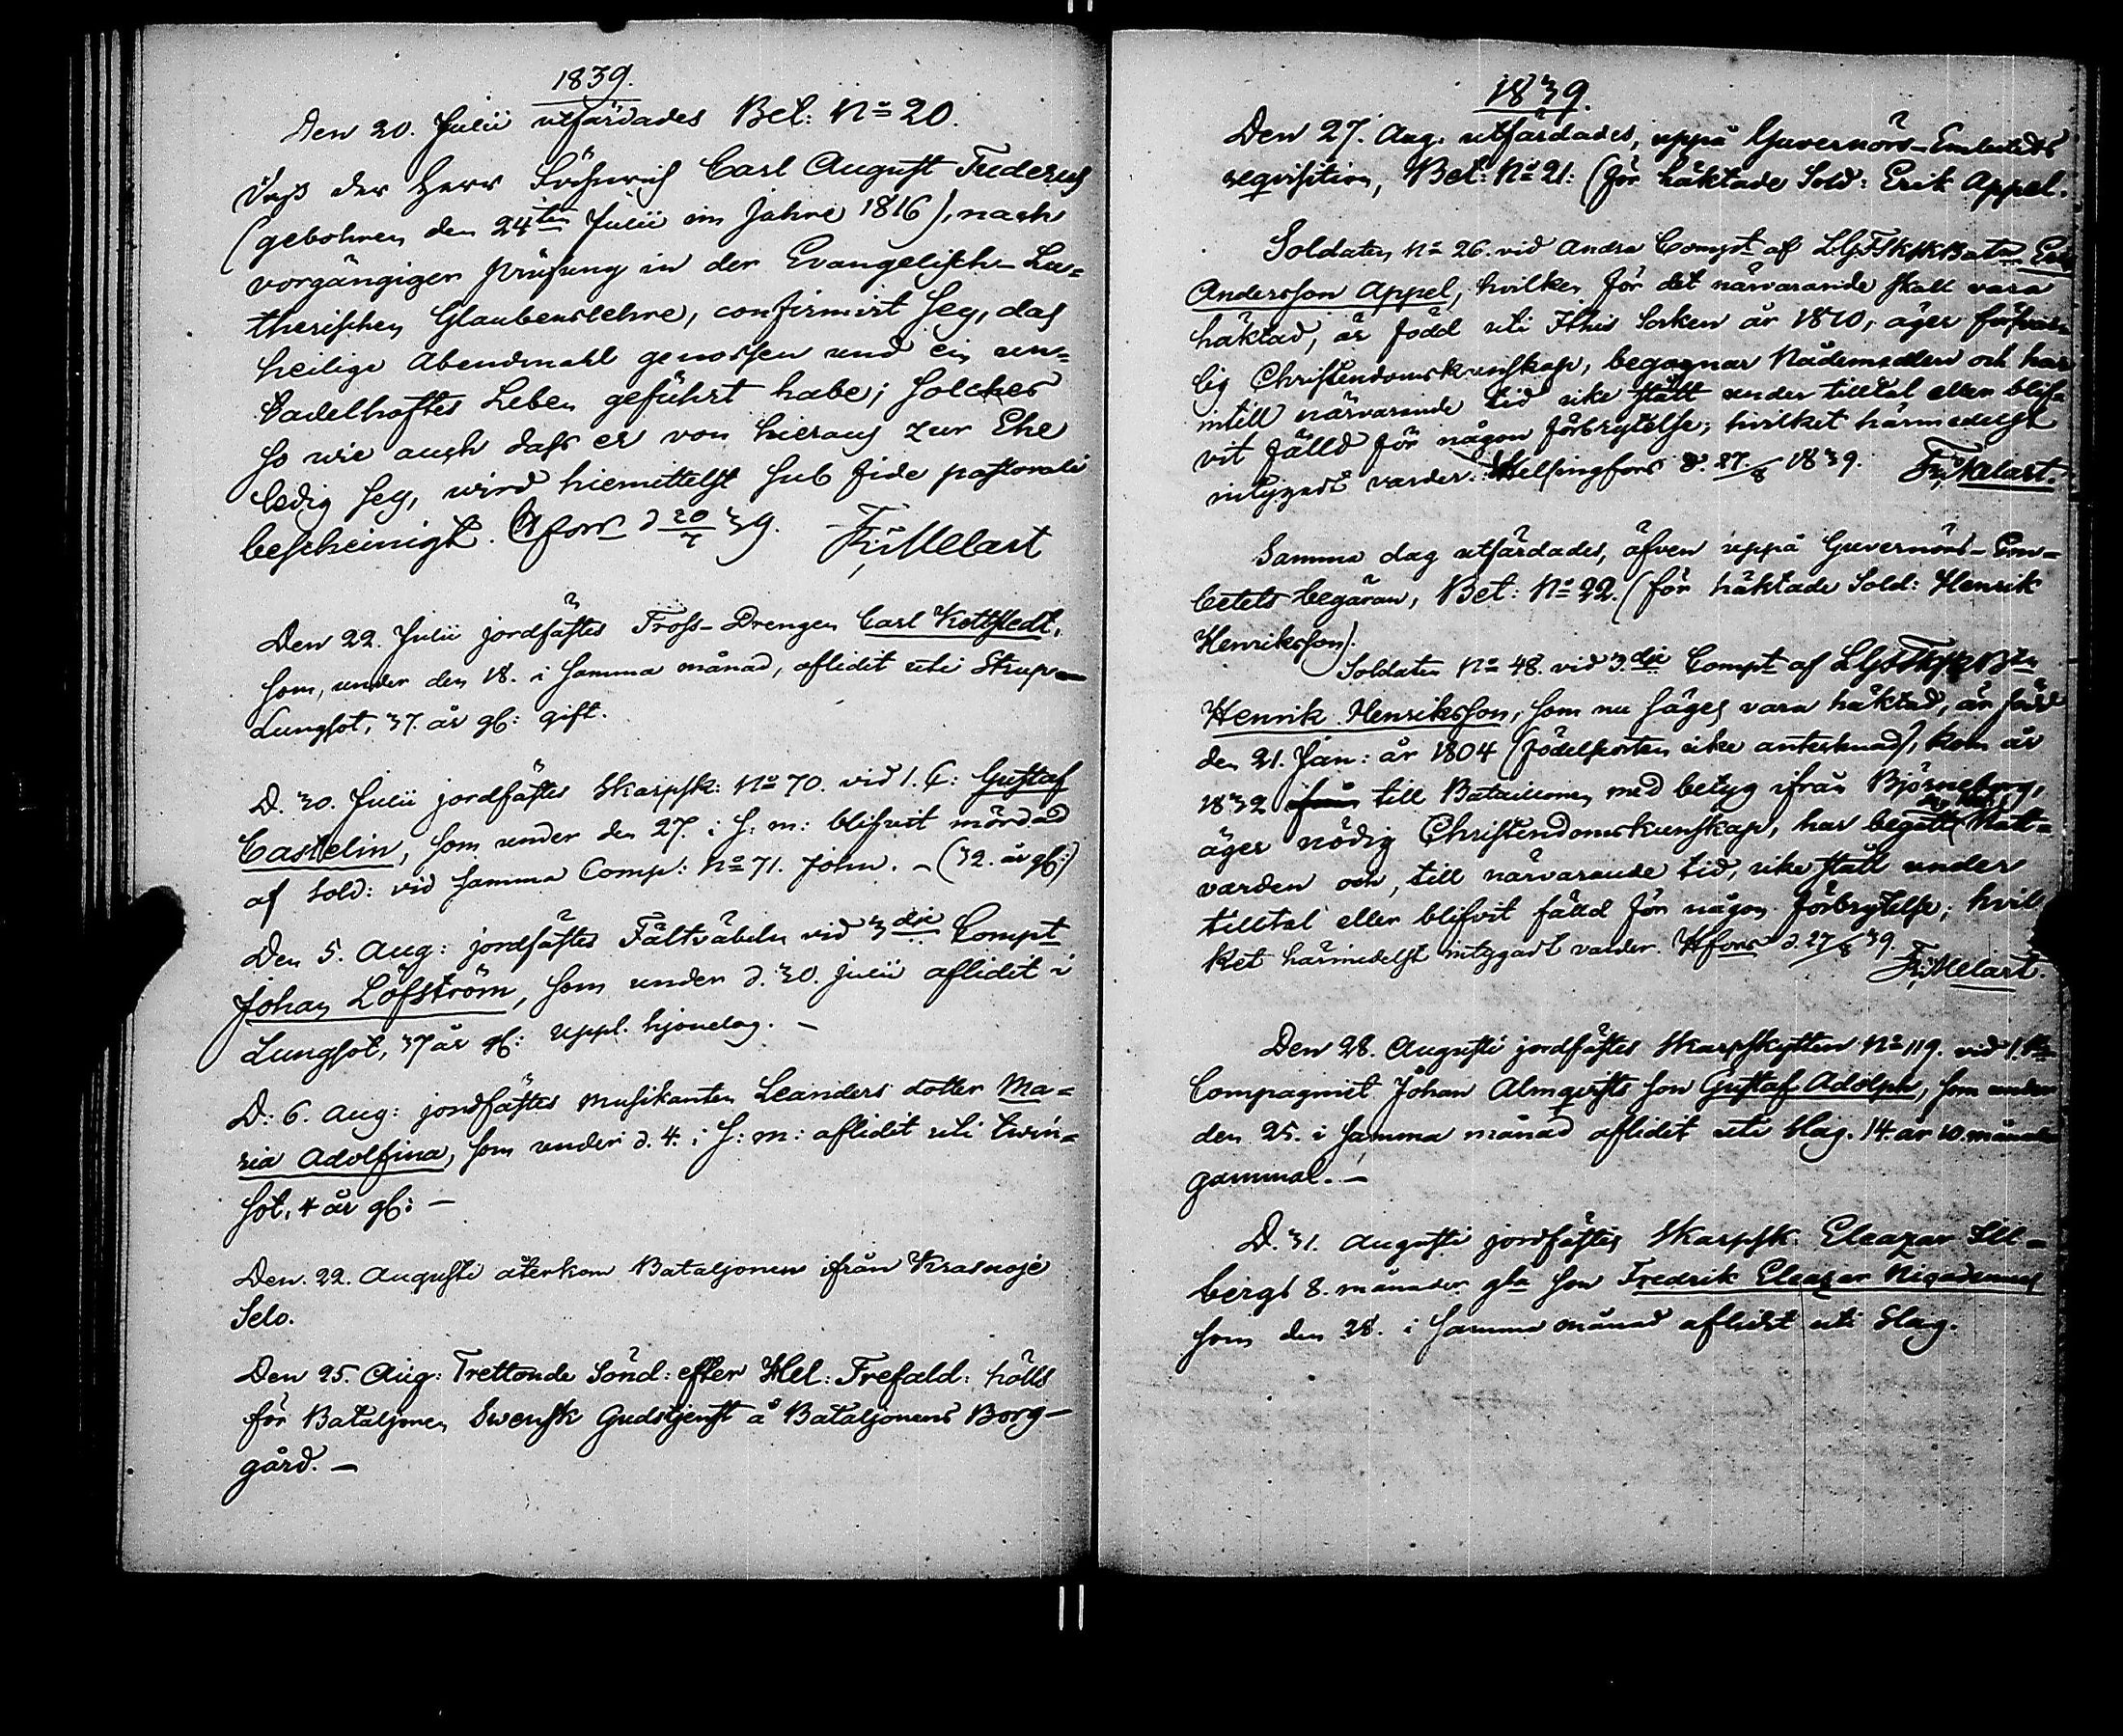 1839.
Den 20. Julii utfärdades Bet: No 20.
Daß der Herr Fähnrich Carl August Frederick
(gebohren den 24ten Julii im Jahre 1816), nach
vorgängiger Prüfung in der Evangelisch-Lu=
therischen Glaubenslehre, confirmirt sey, das
heilige Abendmahl genossen und ein un=
tadelhaftes Leben geführt habe; solches
so wie auch dass er von hieraus zur Ehe
ledig sey, wird hiemittelst sub fide pastorali
bescheinigt. Hfors d 20/7 39. Fr: Melart
Den 22. Julii jordfästes Tross-Drengen Carl Kettstedt,
som, under den 18. i samma månad, aflidit uti Strup-
Lungsot, 37. år gl: gift.
D. 30. Julii jordfästes Skarpsk: No 70. vid 1. C: Gustaf
Castelin, som under den 27. i s: m: blifvit mördad
af Sold: vid samma Comp: No 71. John. - (32. år gl:)
Den 5. Aug: jordfästes Fältväbeln vid 3die Compt
Johan Löfström, som under d. 30. Julii aflidit i
Lungsot, 37 år gl: uppl. hjonelag. -
D: 6. Aug: jordfästes Musikanten Leanders dotter Ma=
ria Adolfina, som under d. 4. i s: m: aflidit uti twin=
sot, 4 år gl: -
Den. 22. Augusti återkom Bataljonen ifrån Krasnoje
Selo.
Den 25. Aug: Trettonde Sönd: efter Hel: Trefald: hölls
för Bataljonen Swensk Gudstjenst å Bataljonens Borg-
gård. -
1839.
Den 27. Aug. utfärdades, uppå Guvernörs-Embetets
reqvisition, Bet: No 21: (för häktade Sold: Erik Appel.
Soldaten No 26. vid Andra Compt af LGFSkskBatn Erik
Andersson Appel, hvilken för det närvarande skall vara
häktad, är född uti Ithis Socken år 1810, äger försvar
lig Christendomskunskap, begagnar Nådemedlen och har
intill närvarande tid icke stått under tilltal eller blif-
vit fälld för någon förbrytelse; hvilket härmedelst
intygadt varder. Helsingfors d. 27/8 1839. Fr: Melart.
Samma dag utfärdades, äfven uppå Guvernörs-Em-
betets begäran, Bet: No 22. (för häktade Sold: Henrik
Henriksson).
Soldaten No 48. vid 3.die Compt af LGFSkskBtn
Henrik Henriksson, som nu säges vara häktad, är född
den 21. Jan: år 1804 (födelseorten icke antecknad), kom år
1832 ifrån till Bataillonen med betyg ifrån Björneborg,
äger nödig Christendomskunskap, har begått Natt=
varden och, till närvarande tid, icke stått under
tilltal eller blifvit fälld för någon förbrytelse; hvil
ket härmedelst intygadt varder. Hfors d. 27/8 39.
Fr: Melart.
Den 28. Augusti jordfästes Skarpskytten No 119. vid 1.sta
Compagniet Johan Almqvists son Gustaf Adolph, som under
den 25. i samma månad aflidit uti Slag. 14. år 10. månader
gammal. -
D. 31. Augusti jordfästes Skarpsk. Eleazar Sil-
bergs 8. månader gla son Fredrik Eleazar Nigodemus
som den 28. i samma månad aflidit uti Slag.